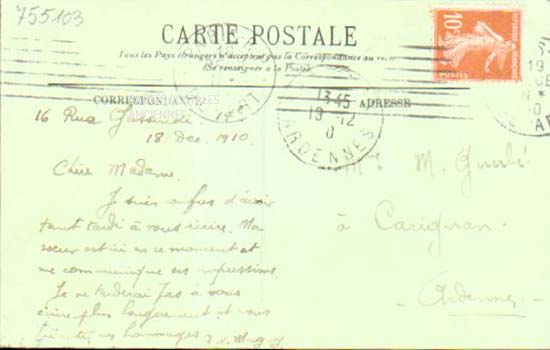 755103
CARTE POSTALE
Tous les Pays étrangers n'acceptent pas la Correspondance au recto
(Se renseigner à la Poste)
CORRESPONDANCE
ADRESSE
10c
POSTES
13-45
19-12
ARDENNES
16 Rue 14
18 Dec. 1910
Chère Madame,
Je suis confuse d'avoir
tant tardé à vous écrire. Ma
soeur est ici en ce moment et
me communique ses impressions.
Je ne tarderai pas à vous
écrire plus longuement et vous
mes hommages
M.
à
Carignan
Ardennes